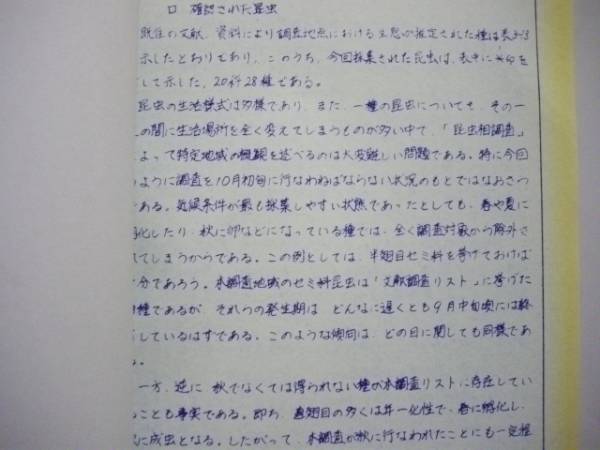 ロ 確認された昆虫
既往の文献、資料により調査地点における生息が推定された種は表
示したとおりであり、このうち、今回採集された昆虫は、表中に※印を
して示した、20科28種である。
昆虫の生活様式は多様であり、また、一種の昆虫についても、その一
の間に生活場所を全く変えてしまうものが多い中で、「昆虫相調査」
よって特定地域の概観を述べるのは大変難しい問題である。特に今回
ように調査を10月初旬に行なわねばならない状況のもとではなおさら
ある。気候条件が最も採集しやすい状態であったとしても、春や夏に
化したり、秋に卵などになっている種では、全く調査対象から除外さ
てしまうからである。この例としては、半翅目セミ科を挙げておけば
分であろう。本調査地域のセミ科昆虫は「文献調査リスト」に挙げた
種であるが、それらの発生期は、どんなに遅くとも9月中旬頃には終
しているはずである。このような傾向は、どの目に関しても同様であ
。
一方、逆に、秋でなくては得られない種が本調査リストに存在してい
ことも事実である。即ち、直翅目の多くは年一化性で、春に孵化し、
に成虫となる。したがって、本調査が秋に行なわれたことにも一定程